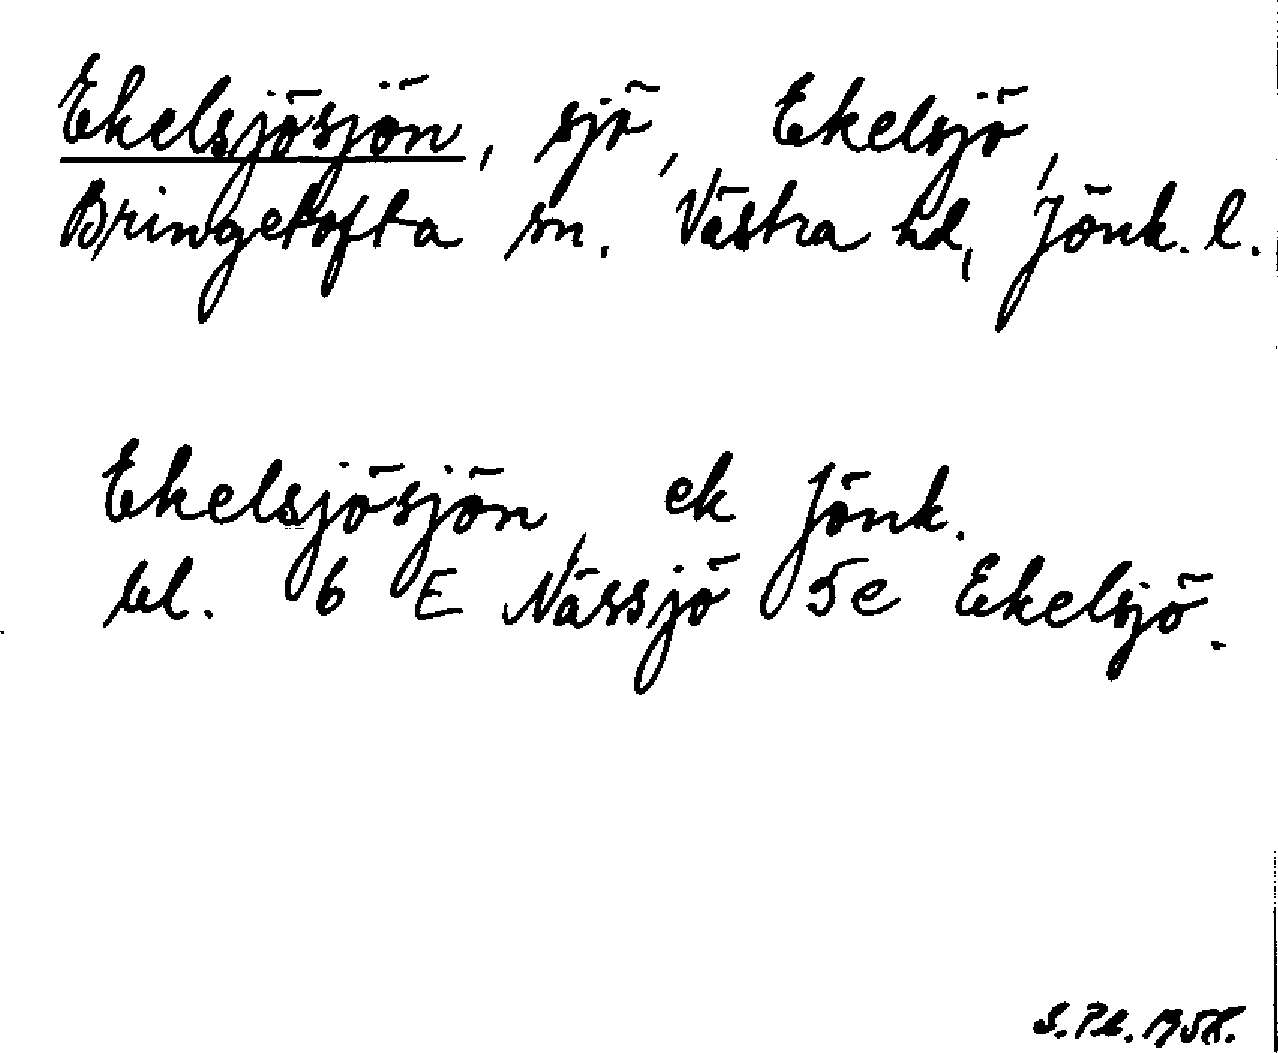 Ekelsjösjön, sjö, Ekelsjö,
Bringetofta sn. Västra hd, Jönk. l.
Ekelsjösjön, ek Jönk.
bl. 6 E Nässjö 5e Ekelsjö.
1958.